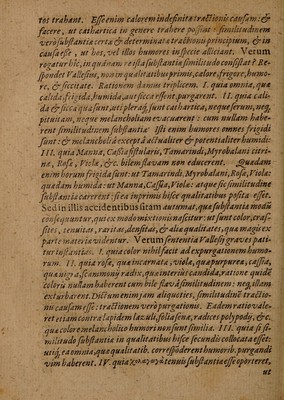 tos trahant. Esse enim calorem indefinitæ tractionis causam: &
facere, ut cathartica in genere trahere possint: similitudinem
verò substantiæ certæ & determinatæ tractionis principium, & in
causa esse, ut hos, vel illos humores in specie alliciant. Verum
rogatur hîc, in quónam: re ista substantiæ similitudo consistat? Re-
spondet Vallesius, non in qualitatibus primis, calore, frigore, humo-
re, & siccitate. Rationem danus triplicem. I. quia omnia, quæ
calida, frigida, humida, aut sicca essent, purgarent. II. quia cali-
da & sicca quædam, uti pleraq; sunt cathartica, neque serum, neq;
pituitam, neque melancholiam evacuarent: cum nullam habe-
rent similitudinem substantiæ Isti enim humores omnes frigidi
sunt: & melancholiâ exceptâ actualiter & potentialiter humidi:
III. quia Manna, Cassia fistularis, Tamarindi, Myrobalani citri-
næ, Rosæ, Violæ, &c. bilem flavam non educerent. Quædam
enim horum frigida sunt: ut Tamarindi, Myrobalani, Rosa, Viola:
quædam humida: ut Manna, Cassia, Viola: atque sic similitudine
substantiæ carerent: si ea in primis hisce qualitatibus posita esset.
Sed in illis accidentibus sitam autumat, quæ substantiæ modũ
consequuntur, qui ex modo mixtionis nascitur: ut sunt color, crass-
sities, tenuitas, raritas, densitas, & aliæ qualitates, quæ magis ex
parte materiæ videntur. Verum sententia Vallesij graves pati-
tur instantias. I. quia color nihil facit ad expurgationem humo-
rum. II. quia rosa, quæ incarnata, viola, quæ purpurea, cassia,
quæ nigra, scammonij radix, quæ interiùs candida, ratione quidẽ
coloris nullam haberent cum bile flavâ similitudinem: neq; illam
exturbarent. Dictum enim jam aliquoties, similitudinẽ tractio-
nis causam esse: tractionem verò purgationis. Eadem ratio vale-
ret etiam contra lapidem lazuli, folia senæ, radices polypodij, & c.
quæ colore melancholico humori non sunt similia. III. quia si si-
militudo substantiæ in qualitatibus hisce secundis collocata esset:
utiq; ea omnia, quæ qualitatib. correspõderent humorib. purgandi
vim haberent. IV. quia tenuis substantiæ esse oporteret,
ut